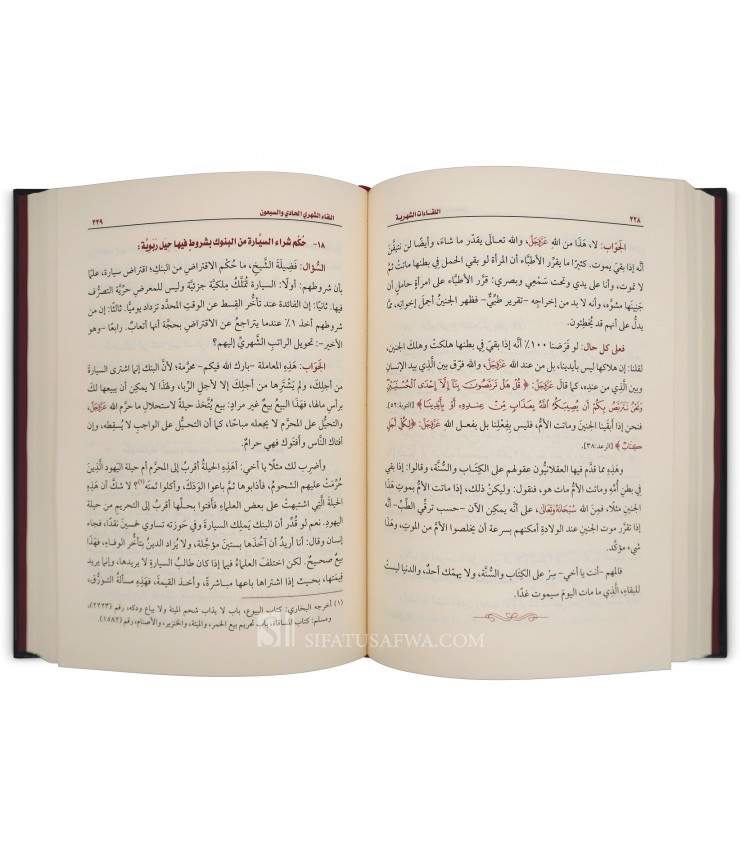 ٢٢٨
اللقاءات الشهرية
الجَوَاب: لا، هَذَا من اللهِ عَزَّوَجَلَّ، والله تعالَى يقدّر ما شَاءَ، وأيضًا لن نتيقَّنَ
أنَّه إذا بقيَ يموت. كثيرًا ما يقرِّر الأطبَّاء أن المرأة لو بقي الحمل في بطنها ماتتْ ثُمَّ
لا تموت، وأنا على يدي وتحت سَمْعِي وبصري: قرَّر الأطبَّاء على امرأةٍ حاملٍ أن
جَنِينَها مشوَّه، وأنه لا بد من إخراجِه –تقرير طبِّيٌّ– فظهر الجَنينُ أجملَ إخوانِه، ممَّا
يدلُّ على أنهم قد يُخْطِئون.
فعلى كل حالٍ: لو فَرَضْنا ١٠٠٪ أنَّه إذا بقيَ في بطنها هلكتْ وهلكَ الجنين،
لقلنا: إن هلاكها ليس بأيدينا، بل من عند الله عَزَّوَجَلَّ، والله فرّق بين الَّذي بيد الإنسانِ
وبين الَّذي من عندِه، كما قال عَزَّوَجَلَّ: ﴿قُلْ هَلْ تَرَبَّصُونَ بِنَا إِلَّا إِحْدَى الْحُسْنَيَيْنِ
وَنَحْنُ نَتَرَبَّصُ بِكُمْ أَن يُصِيبَكُمُ اللَّهُ بِعَذَابٍ مِّنْ عِندِهِ أَوْ بِأَيْدِينَا﴾ [التوبة:٥٢]
فنحن إذا أبقينا الجَنينَ وماتت الأمُّ، فليس بِفِعْلِنا بل بفعل الله عَزَّوَجَلَّ: ﴿لِكُلِّ أَجَلٍ
كِتَابٌ﴾ [الرعد:٣٨].
وهَذِه مما قدَّم فيها العقلانيُّون عقولهم على الكِتَابِ والسُّنَّة، وقالوا: إذا بقي
في بطن أُمِّه وماتتِ الأمُّ ماتَ هو، فنقول: وليكنْ ذلك، إذا ماتتِ الأمُّ بموتِ هذا
الجنينِ مثلًا، فمِنَ الله سُبْحَانَهُ وَتَعَالَى، على أنَّه يمكِن الآنَ –حسب ترقِّي الطِّبِّ– أنَّه
إذا تقرّر موت الجَنينِ عند الولادةِ أمكنهم بسرعة أن يخلصوا الأمَّ من الموتِ، وهَذا
شيء مؤكَّد.
فالمهم –أنت يا أخي– سِرْ على الكِتَابِ والسُّنَّة، ولا يهمّك أحدٌ، والدنيا ليستْ
للبقاءِ، الَّذي ما مات اليومَ سيموت غدًا.
اللقاء الشهري الحادي والسبعون
٢٢٩
١٨- حُكْم شراء السيَّارة من البنوك بشروط فيها حيل رِبَوِيَّة:
السُّؤال: فَضِيلَةَ الشَّيخِ، ما حُكْم الاقتراضِ من البنكِ، اقتراض سيارة، علمًا
بأن شروطهم: أولًا: السيارة تُمَلَّك مِلكيَّة جزئيَّة وليس للمعرض حرِّيَّة التصرُّف
فيها. ثانيًا: إن الفائدة عند تأخُّر القِسط عن الوقتِ المحدَّد تزداد يوميًّا. ثالثًا: إن من
شروطهم أخذ ١٪ عندما يتراجع عن الاقتراض بحجَّة أنها أتعابٌ. رابعًا –وهو
الأخير–: تحويل الراتبِ الشهريِّ إليهم؟
الجَوَاب: هَذِهِ المعاملة –بارك الله فيكم– محرَّمة؛ لأنَّ البنك إنما اشترى السيارةَ
من أجلِكَ، ولم يَشْتَرِها من أجلِك إلَّا لأجلِ الرِّبا، وهَذَا لا يمكِن أن يبيعها لكَ
برأسِ مالها، فهَذَا البيعُ بيعٌ غير مرادٍ؛ بيع يُتَّخَذ حيلةً لاستحلالِ ما حرَّم الله عَزَّوَجَلَّ،
والتحيُّل على المحرَّم لا يجعله مباحًا، كما أن التحيُّلَ على الواجبِ لا يُسقِطه، وإن
أفتاك النَّاس وأفتَوك فهي حرامٌ.
وأضرِب لك مثلًا يا أخي: أَهَذِهِ الحيلةُ أقربُ إلى المحرَّم أم حيلة اليَهود الَّذِينَ
حُرِّمَتْ عليهم الشحومُ، فأذابوها ثمَّ باعوا الوَدَكَ، وأكلوا ثمنَه(١)؟ لا شكَّ أن هَذِه
الحيلة الَّتي اشتبهتْ على بعض العلماءِ فأفتوا بحلِّها أقربُ إلى التحريم من حيلة
اليَهود. نعم لو قُدِّر أن البنك يَملِك السيارةَ وفي حَوْزته تساوي خمسينَ نقدًا، فجاء
إنسان وقال: أنا أريدُ أن آخُذَها بستينَ مؤجَّلة، ولا يُزاد الدينُ بتأخُّر الوفاءِ، فهَذا
بيعٌ صحيحٌ. لكن اختلفَ العلماءُ فيما إذا كان طالبُ السيارةِ لا يريدها، وإنما يريد
قيمتَها، بحيث إذا اشتراها باعها مباشرةً، وأخذ القيمةَ، فهَذِه مسألةُ التورُّق،
(١) أخرجه البخاري: كتاب البيوع، باب لا يذاب شحم الميتة ولا يباع ودكه، رقم (٢٢٢٣)،
ومسلم: كتاب المساقاة، باب تحريم بيع الخمر، والميتة، والخنزير، والأصنام، رقم (١٥٨٢).
SIFATUSAFWA.COM